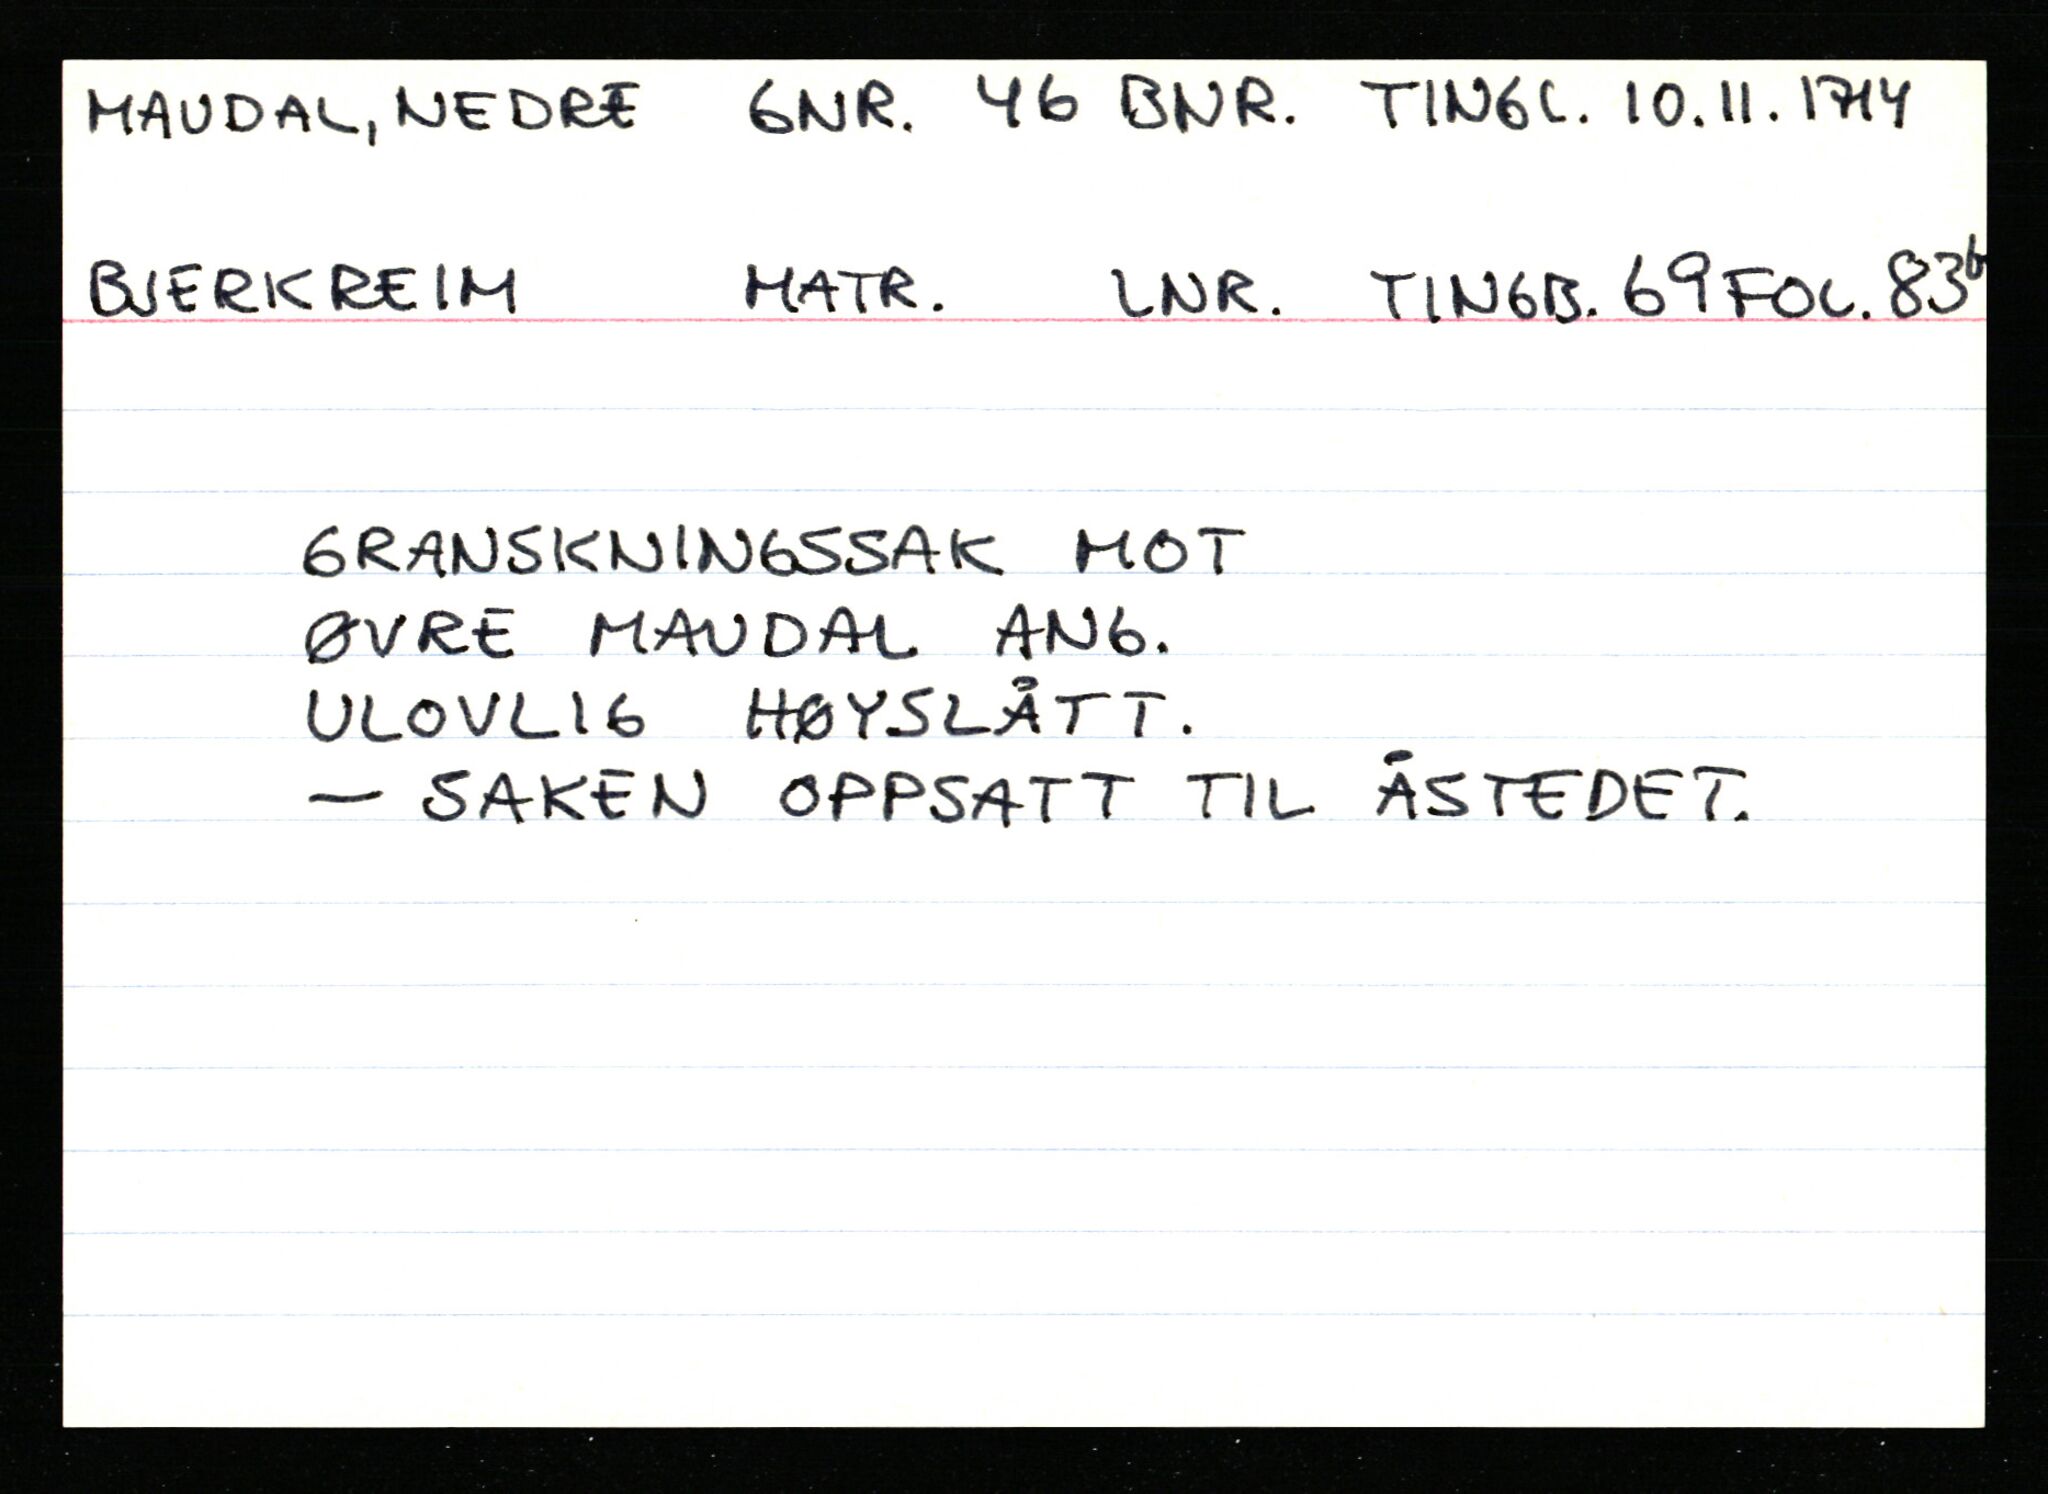 MAUDAL, NEDRE GNR. 46 BNR. TINGL. 10.11.1714
BJERKREIM MATR. LNR. TINGB. 69 FOL. 83b
GRANSKNINGSSAK MOT
ØVRE MAUDAL ANG.
ULOVLIG HØYSLÅTT.
— SAKEN OPPSATT TIL ÅSTEDET.